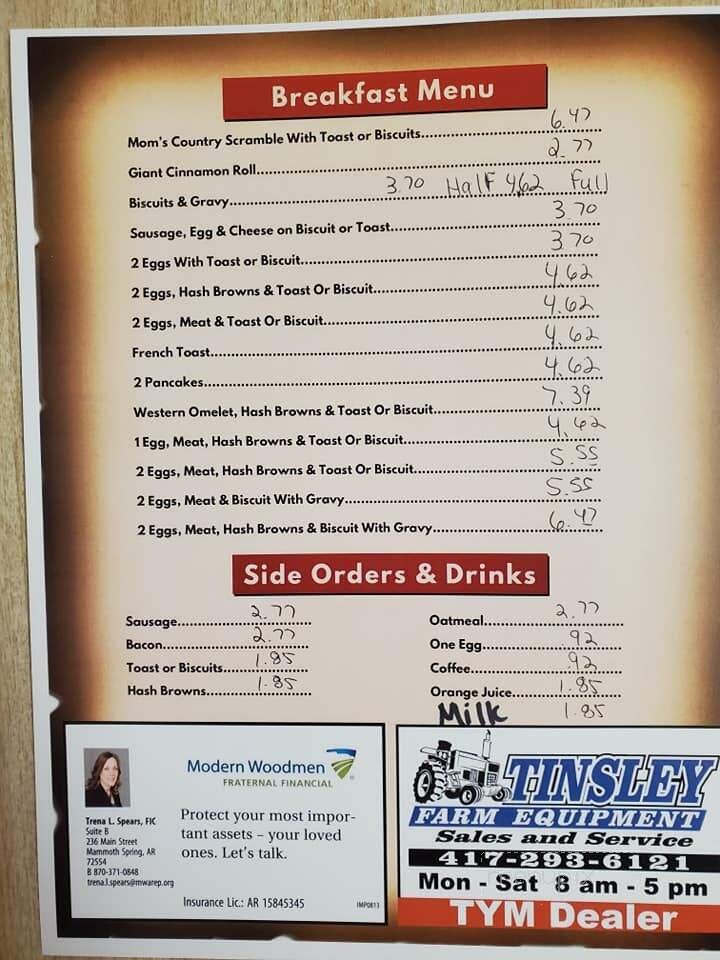 Breakfast Menu
Mom's Country Scramble With Toast or Biscuits.......... 6.47
Giant Cinnamon Roll.......... 2.77
Biscuits & Gravy.......... 3.70 Half 4.62 Full
Sausage, Egg & Cheese on Biscuit or Toast.......... 3.70
2 Eggs With Toast or Biscuit.......... 3.70
2 Eggs, Hash Browns & Toast Or Biscuit.......... 4.62
2 Eggs, Meat & Toast Or Biscuit.......... 4.62
French Toast.......... 4.62
2 Pancakes.......... 4.62
Western Omelet, Hash Browns & Toast Or Biscuit.......... 7.39
1 Egg, Meat, Hash Browns & Toast Or Biscuit.......... 4.62
2 Eggs, Meat, Hash Browns & Toast Or Biscuit.......... 5.55
2 Eggs, Meat & Biscuit With Gravy.......... 5.55
2 Eggs, Meat, Hash Browns & Biscuit With Gravy.......... 6.47
Side Orders & Drinks
Sausage.......... 2.77
Bacon.......... 2.77
Toast or Biscuits.......... 1.85
Hash Browns.......... 1.85
Oatmeal.......... 2.77
One Egg.......... .92
Coffee.......... .92
Orange Juice.......... 1.85
Milk 1.85
Modern Woodmen
FRATERNAL FINANCIAL
Trena L. Spears, FIC
Suite B
236 Main Street
Mammoth Spring, AR
72554
B 870-371-0848
trena.l.spears@mwarep.org
Protect your most impor-
tant assets – your loved
ones. Let's talk.
Insurance Lic.: AR 15845345
IMP0813
TINSLEY
FARM EQUIPMENT
Sales and Service
417-293-6121
Mon - Sat 8 am - 5 pm
TYM Dealer